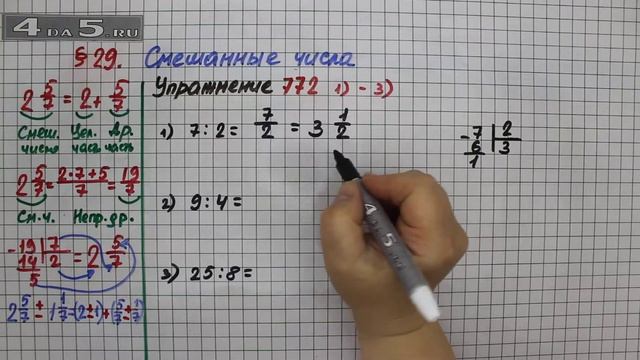 4 DA 5.RU
§ 29. Смешанные числа
Упражнение 772 1) - 3)
1) 7 : 2 = 7/2 = 3 1/2
2) 9 : 4 =
3) 25 : 8 =
-7 | 2
6 | 3
1
2 5/7 = 2 + 5/7
Смеш. Цел. Др.
число часть часть
2 5/7 = 2·7+5/7 = 19/7
См.ч. Непр.др.
-19 | 7
14 | 2 = 2 5/7
5
2 5/7 ± 1 1/7 = (2±1) + (5/7 ± 1/7)
4 DA 5.RU